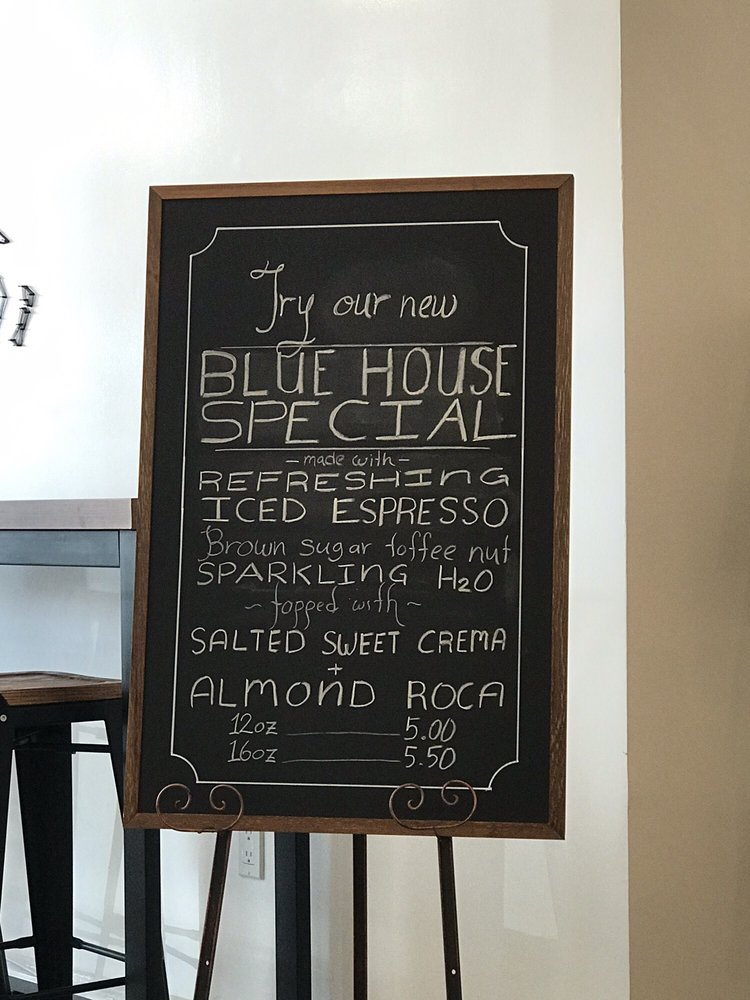 Try our new
BLUE HOUSE
SPECIAL
- made with -
REFRESHING
ICED ESPRESSO
Brown sugar toffee nut
SPARKLING H2O
~ topped with ~
SALTED SWEET CREMA
+
ALMOND ROCA
12oz ———— 5.00
16oz ———— 5.50